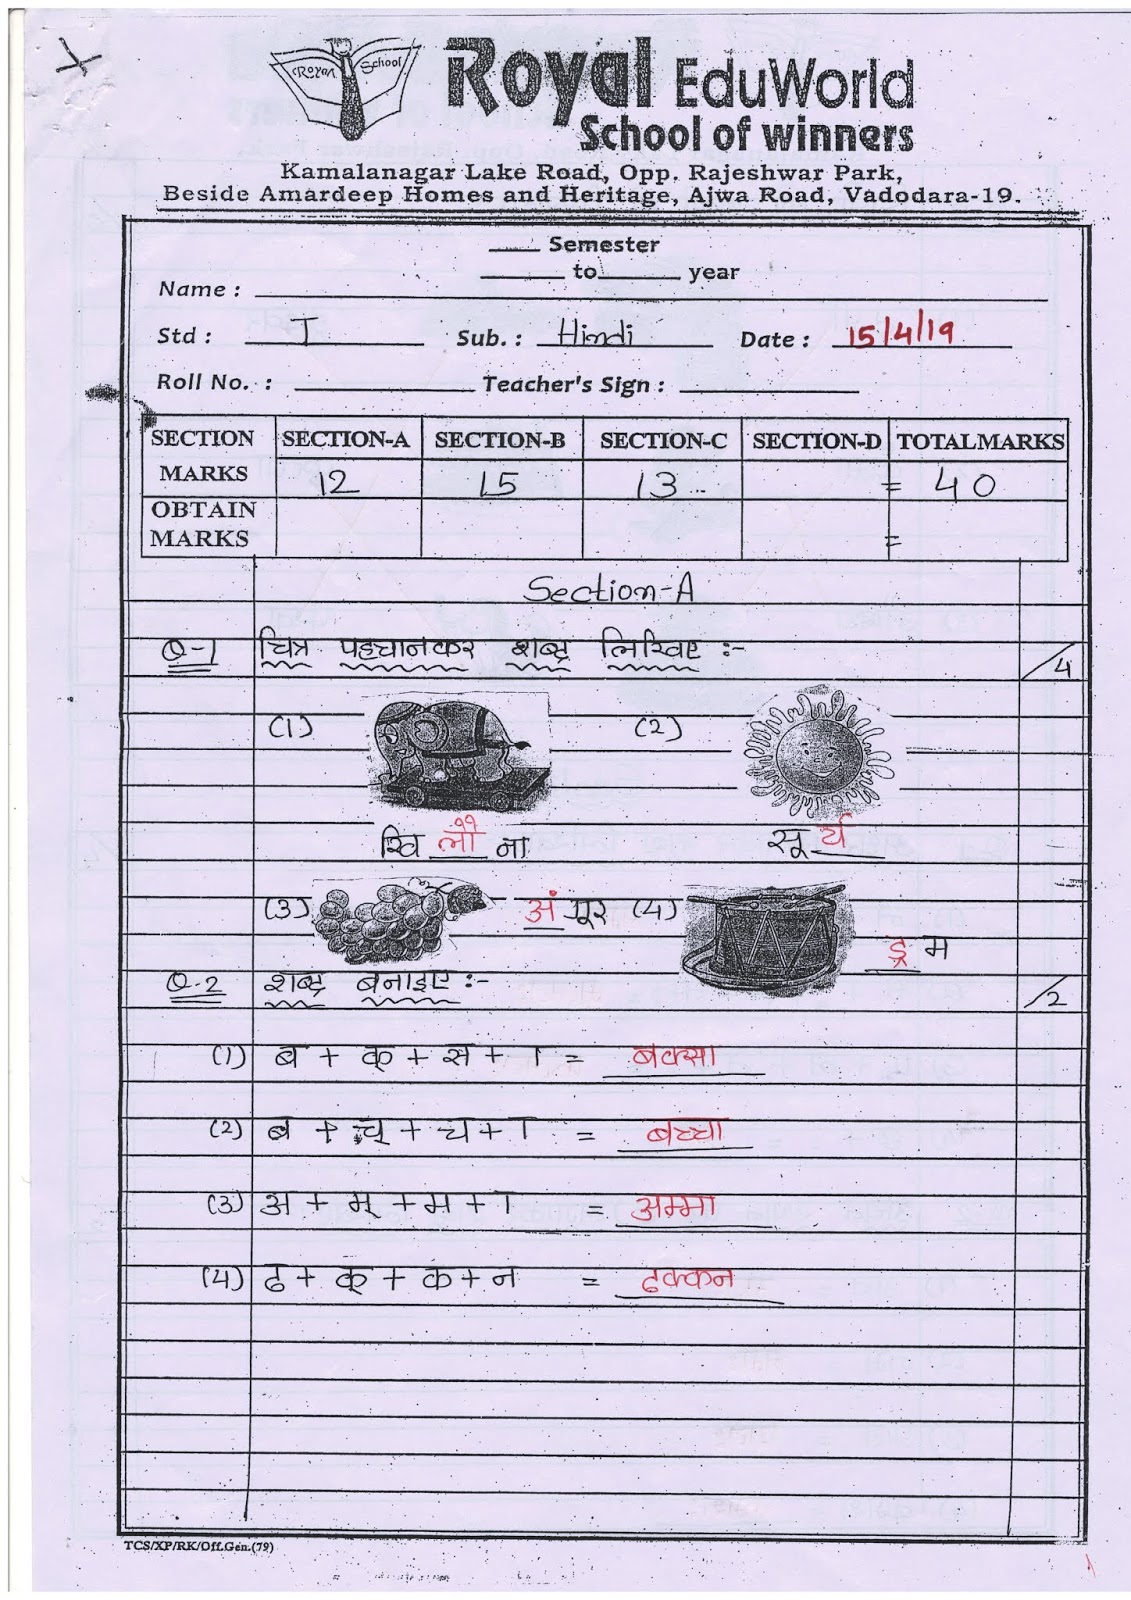 Royal School
Royal EduWorld
School of winners
Kamalanagar Lake Road, Opp. Rajeshwar Park,
Beside Amardeep Homes and Heritage, Ajwa Road, Vadodara-19.
____ Semester
______ to ______ year
Name :
Std : I Sub. : Hindi Date : 15/4/19
Roll No. : Teacher's Sign :
SECTION SECTION-A SECTION-B SECTION-C SECTION-D TOTALMARKS
MARKS 12 15 13 = 40
OBTAIN MARKS =
Section-A
Q-1 चित्र पहचानकर शब्द लिखिए :- /4
(1) (2)
खि लौ ना सू र्य
(3) अं गूर (4) ड्र म
Q.2 शब्द बनाइए :- /2
(1) ब + क् + स + ा = बक्सा
(2) ब + च् + च + ा = बच्चा
(3) अ + म् + म + ा = अम्मा
(4) ढ + क् + क + न = ढक्कन
TCS/XP/RK/Off.Gen.(79)